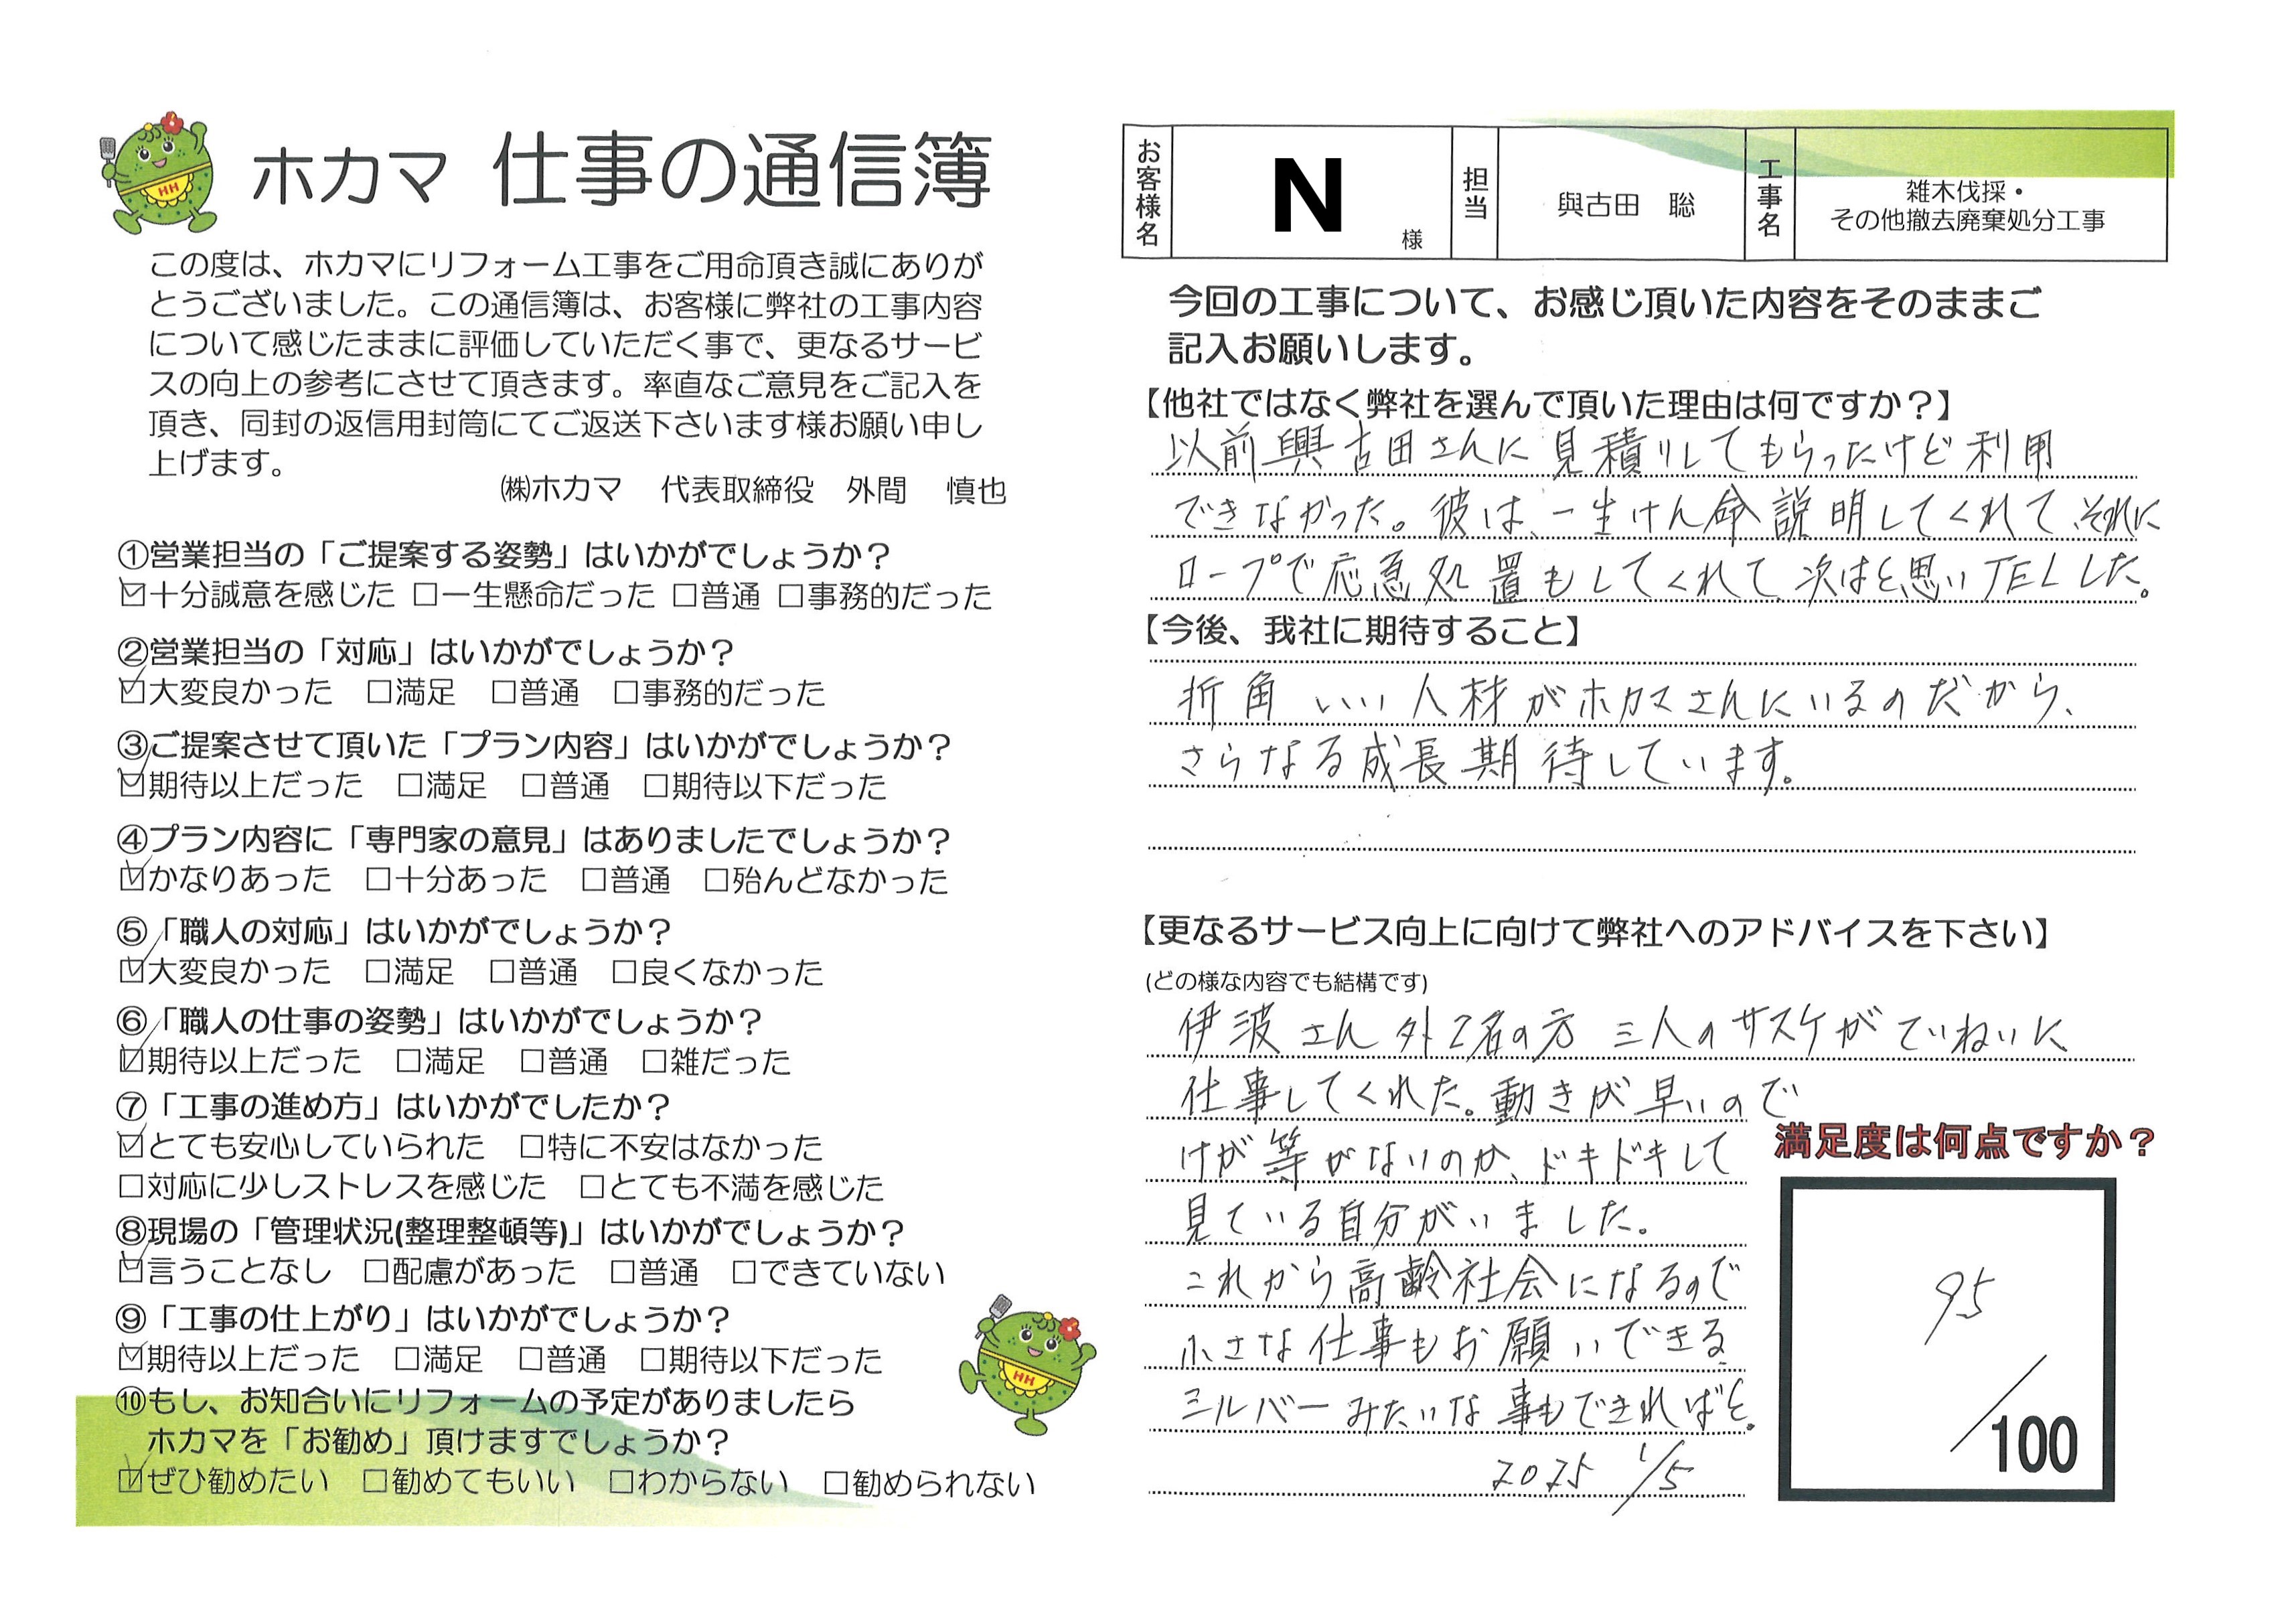 ホカマ 仕事の通信簿
この度は、ホカマにリフォーム工事をご用命頂き誠にありが
とうございました。この通信簿は、お客様に弊社の工事内容
について感じたままに評価していただく事で、更なるサービ
スの向上の参考にさせて頂きます。率直なご意見をご記入を
頂き、同封の返信用封筒にてご返送下さいます様お願い申し
上げます。
㈱ホカマ 代表取締役 外間 慎也
①営業担当の「ご提案する姿勢」はいかがでしょうか？
☑十分誠意を感じた □一生懸命だった □普通 □事務的だった
②営業担当の「対応」はいかがでしょうか？
☑大変良かった □満足 □普通 □事務的だった
③ご提案させて頂いた「プラン内容」はいかがでしょうか？
☑期待以上だった □満足 □普通 □期待以下だった
④プラン内容に「専門家の意見」はありましたでしょうか？
☑かなりあった □十分あった □普通 □殆んどなかった
⑤「職人の対応」はいかがでしょうか？
☑大変良かった □満足 □普通 □良くなかった
⑥「職人の仕事の姿勢」はいかがでしょうか？
☑期待以上だった □満足 □普通 □雑だった
⑦「工事の進め方」はいかがでしたか？
☑とても安心していられた □特に不安はなかった
□対応に少しストレスを感じた □とても不満を感じた
⑧現場の「管理状況(整理整頓等)」はいかがでしょうか？
☑言うことなし □配慮があった □普通 □できていない
⑨「工事の仕上がり」はいかがでしょうか？
☑期待以上だった □満足 □普通 □期待以下だった
⑩もし、お知合いにリフォームの予定がありましたら
ホカマを「お勧め」頂けますでしょうか？
☑ぜひ勧めたい □勧めてもいい □わからない □勧められない
お客様名 N 様 担当 與古田 聡 工事名 雑木伐採・
その他撤去廃棄処分工事
今回の工事について、お感じ頂いた内容をそのままご
記入お願いします。
【他社ではなく弊社を選んで頂いた理由は何ですか？】
以前與古田さんに見積りしてもらったけど利用
できなかった。彼は、一生けん命説明してくれて、それに
ロープで応急処置もしてくれて次はと思いTELした。
【今後、我社に期待すること】
折角いい人材がホカマさんにいるのだから、
さらなる成長期待しています。
【更なるサービス向上に向けて弊社へのアドバイスを下さい】
(どの様な内容でも結構です)
伊波さん外2名の方 三人のサスケがていねいに
仕事してくれた。動きが早いので
けが等がないのか、ドキドキして
見ている自分がいました。
これから高齢社会になるので
小さな仕事もお願いできる
ミルバーみたいな事もできればと。
2025 1/5
満足度は何点ですか？
95
/100
HH
HH